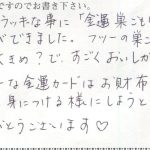 ですのでお書き下さい。
ラッキな事に「金運巣ごもり
べできました。フツーの巣ご
くきめ?で、すごくおいしか
ーな金運カードはお財布
身につける様にしようと
がとうございます♡